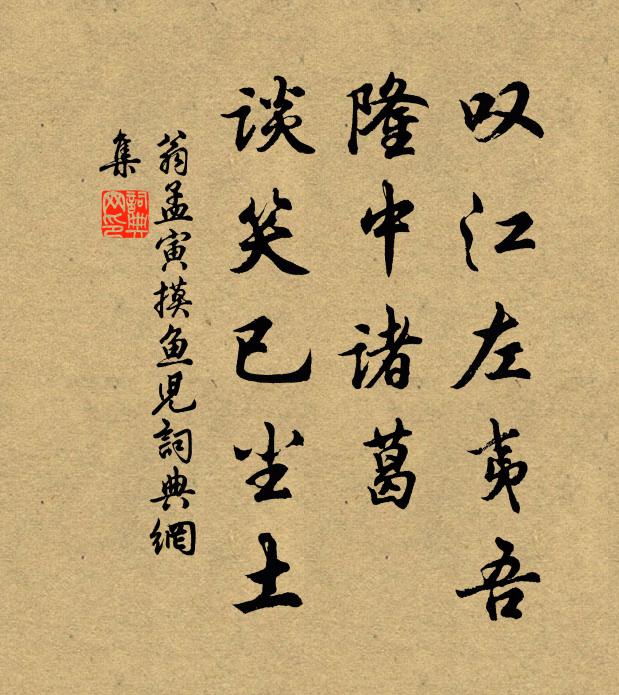 叹江左夷吾
隆中诸葛
谈笑已尘土
翁孟寅摸鱼児詞典網
集
詞典
网印